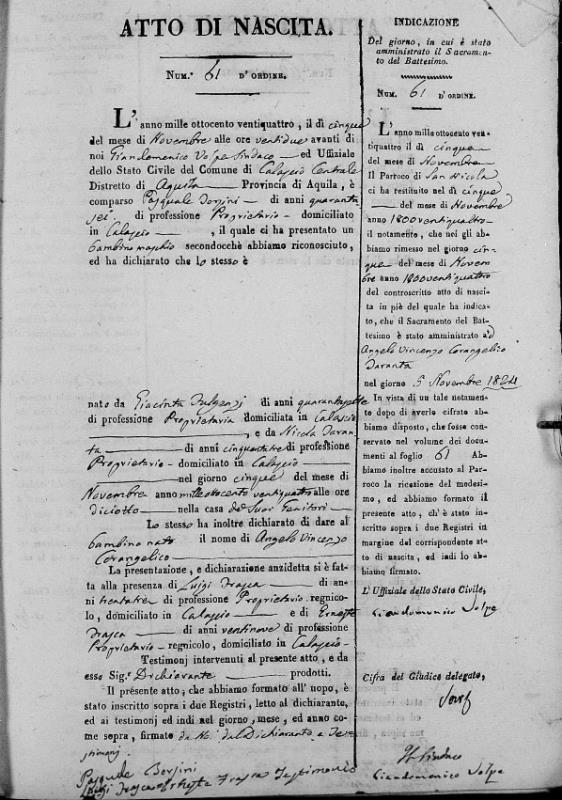 ATTO DI NASCITA.
Num.° 61 D'ORDINE.
L'anno mille ottocento ventiquattro, il dì cinque
del mese di Novembre alle ore ventidue avanti di
noi Giandomenico Volpe Sindaco ed Uffiziale
dello Stato Civile del Comune di Calascio Centrale
Distretto di Aquila Provincia di Aquila, è
comparso Pasquale di anni quaranta
sei di professione Proprietario domiciliato
in Calascio, il quale ci ha presentato un
bambino maschio secondocchè abbiamo riconosciuto,
ed ha dichiarato che lo stesso è
nato da Giacinta di anni
di professione Proprietaria domiciliata in Calascio
, e da Nicola Taran
ta di anni cinquantatre di professione
Proprietario domiciliato in Calascio
nel giorno cinque del mese di
Novembre anno mille ottocento ventiquattro alle ore
diciotto nella casa de' Suoi Genitori
Lo stesso ha inoltre dichiarato di dare al
bambino nato il nome di Angelo Vincenzo
Corangelico
La presentazione, e dichiarazione anzidetta si è fat-
ta alla presenza di Luigi Frasca di an-
ni trentatre di professione Proprietario regnico-
lo, domiciliato in Calascio e di Ernesto
Frasca di anni ventinove di professione
Proprietario regnicolo, domiciliato in Calascio
Testimonj intervenuti al presente atto, e da
esso Sig.r Dichiarante prodotti.
Il presente atto, che abbiamo formato all' uopo, è
stato inscritto sopra i due Registri, letto al dichiarante,
ed ai testimonj ed indi nel giorno, mese, ed anno co-
me sopra, firmato da Noi dal Dichiarante e Te-
stimonj.
Pasquale
Luigi Frasca Testimonio
INDICAZIONE
Del giorno, in cui è stato
amministrato il Sacramen-
to del Battesimo.
Num. 61 D'ORDINE.
L'anno mille ottocento ven-
tiquattro il dì cinque
del mese di Novembre
Il Parroco di San Nicola
ci ha restituito nel dì cinque
del mese di Novembre
anno 1800 ventiquattro
il notamento, che noi gli ab-
biamo rimesso nel giorno cin-
que del mese di Novem
bre anno 1800 ventiquattro
del controscritto atto di nasci-
ta in piè del quale ha indica-
to, che il Sacramento del Bat-
tesimo è stato amministrato ad
Angelo Vincenzo Corangelico
Taranta
nel giorno 5 Novembre 1824
In vista di un tale notamento
dopo di averlo cifrato abbiamo
disposto, che fosse con-
servato nel volume dei docu-
menti al foglio 61 Ab-
biamo inoltre accusato al Par-
roco la ricezione del medesi-
mo, ed abbiamo formato il
presente atto, ch'è stato in-
scritto sopra i due Registri in
margine del corrispondente at-
to di nascita, ed indi lo ab-
biamo firmato.
L'Uffiziale dello Stato Civile,
Giandomenico Volpe
Cifra del Giudice delegato,
Il Sindaco
Giandomenico Volpe